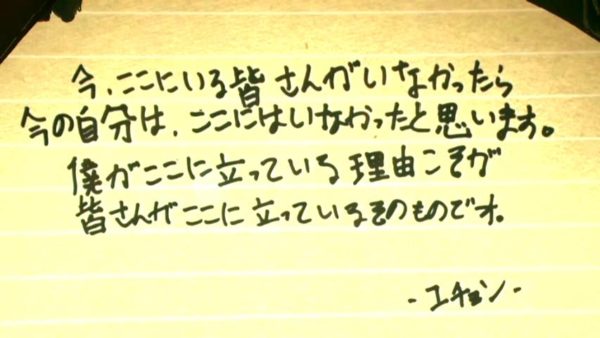 今、ここにいる皆さんがいなかったら
今の自分は、ここにはいなかったと思います。
僕がここに立っている理由こそが
皆さんがここに立っているそのものです。
-エチョン-